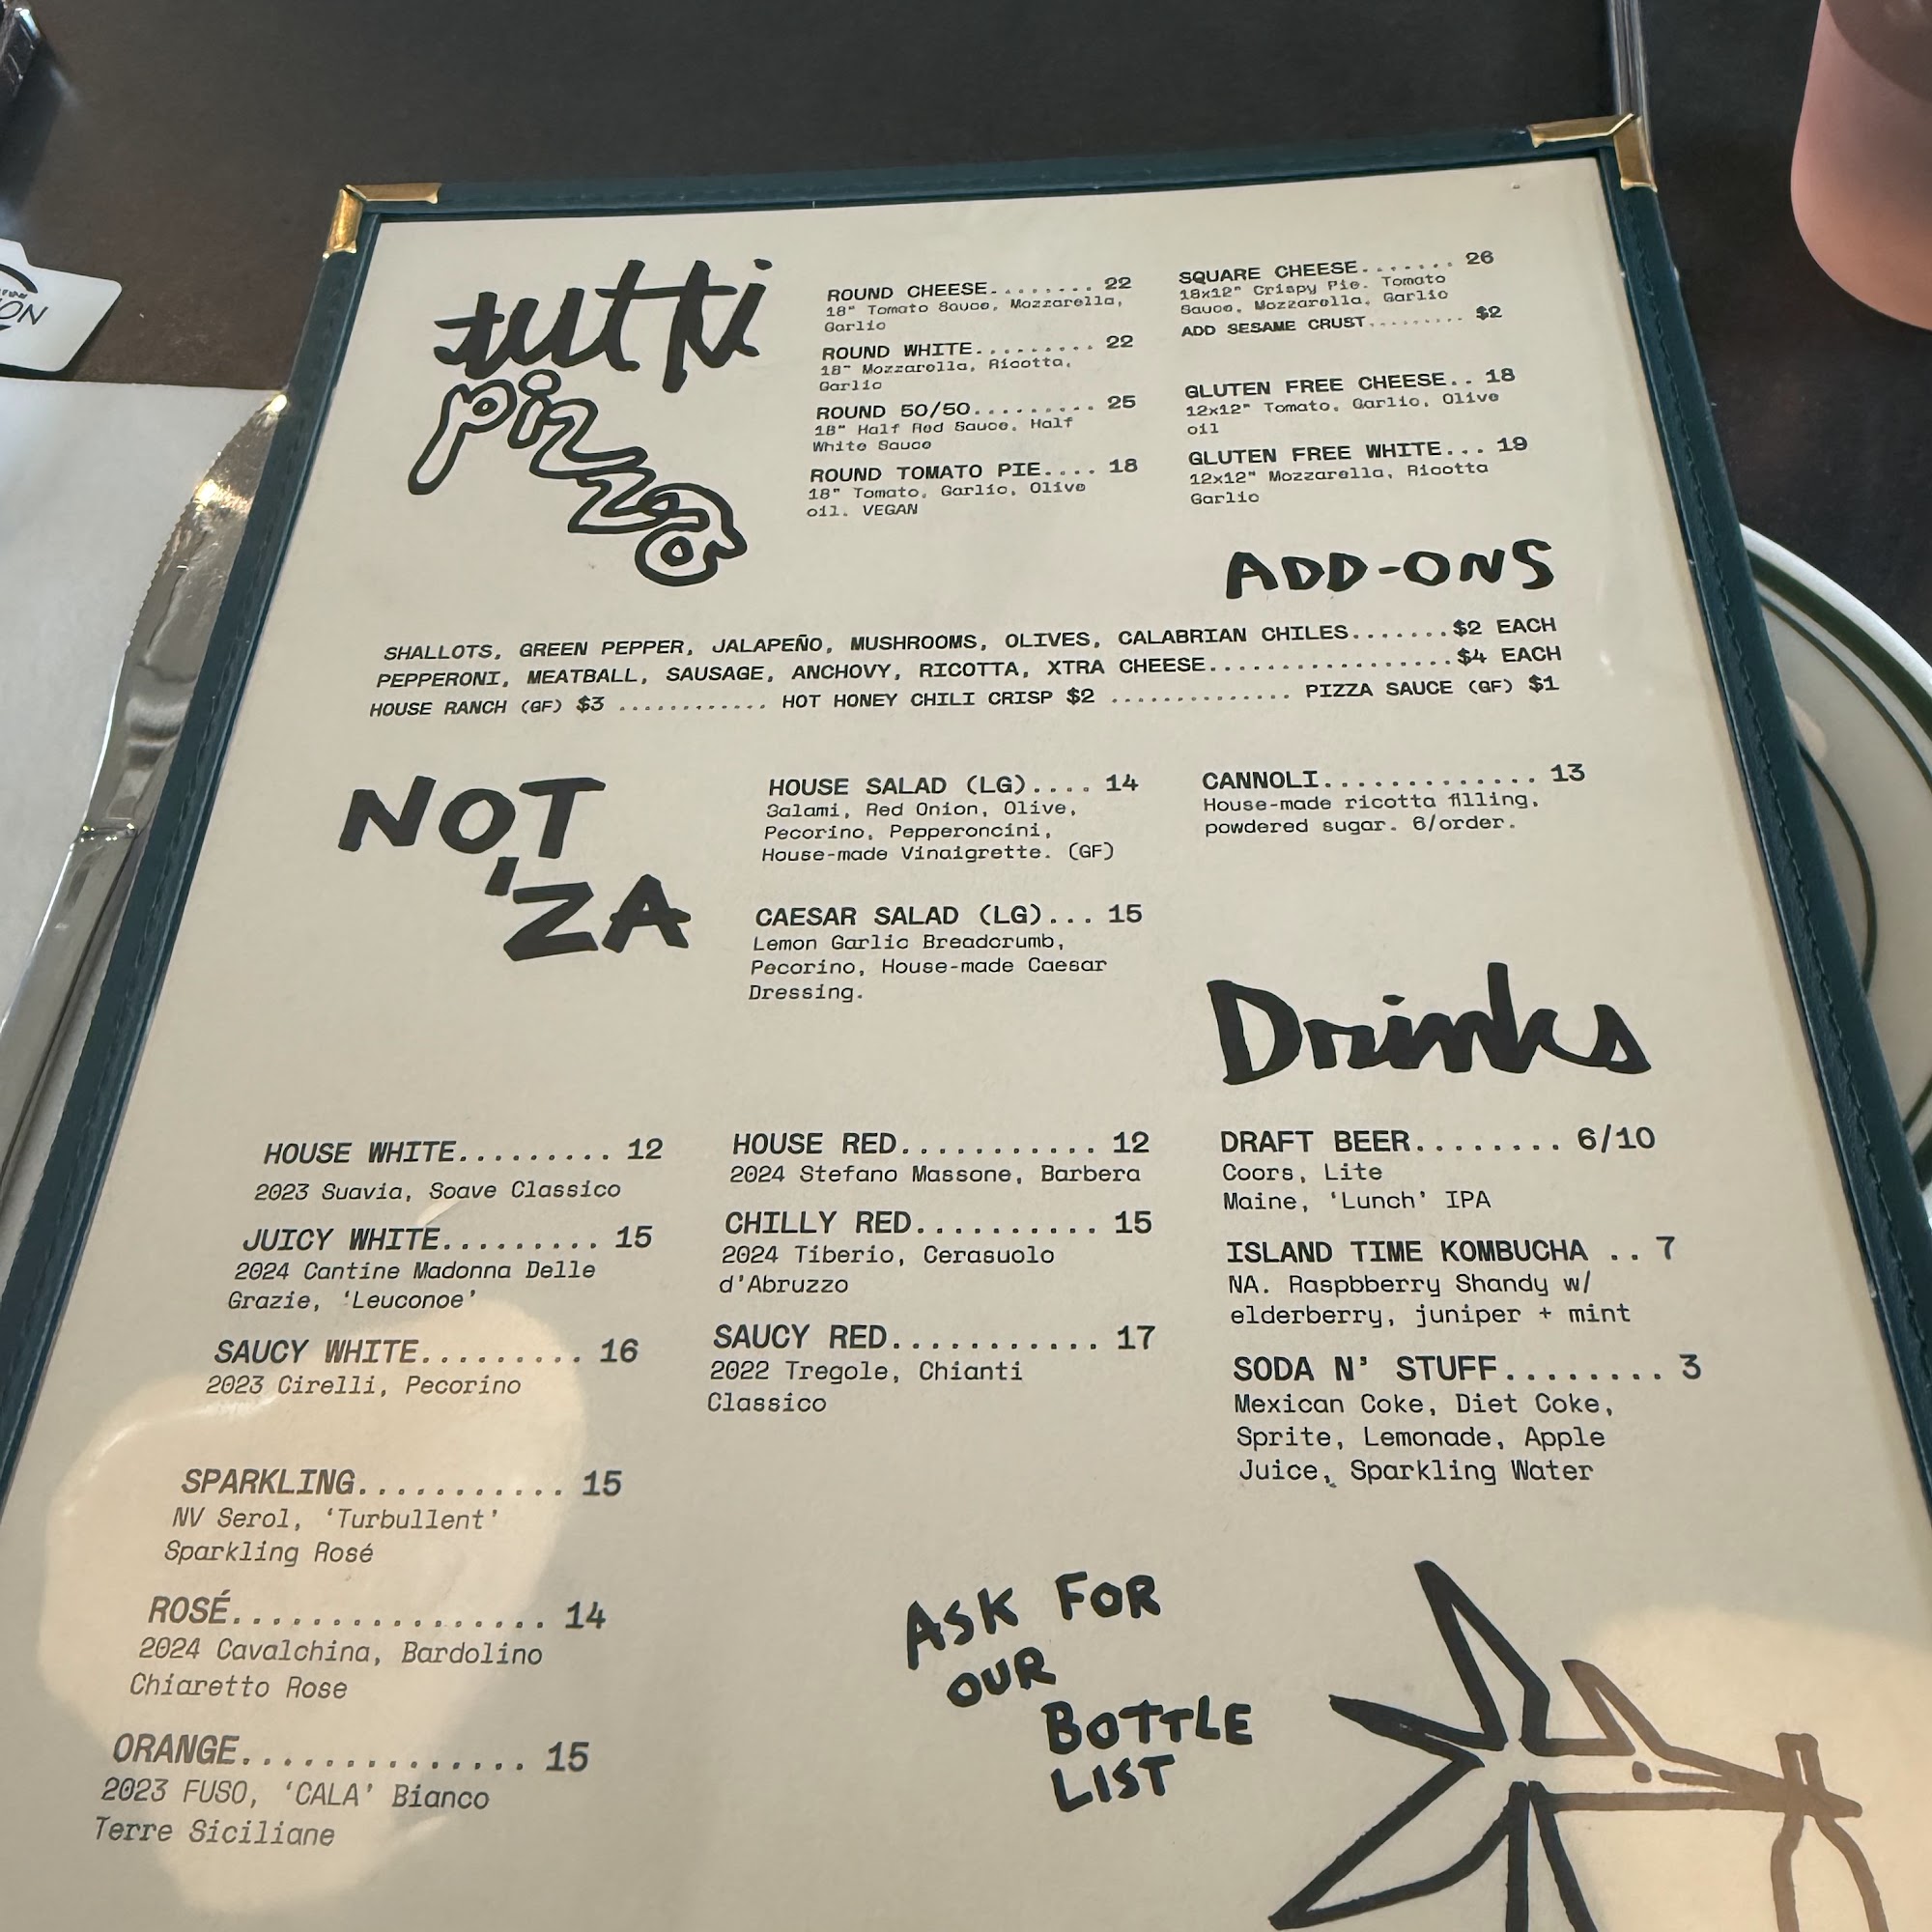 tutti
pizza
ROUND CHEESE........ 22
18" Tomato Sauce, Mozzarella,
Garlic
ROUND WHITE......... 22
18" Mozzarella, Ricotta,
Garlic
ROUND 50/50......... 25
18" Half Red Sauce, Half
White Sauce
ROUND TOMATO PIE.... 18
18" Tomato, Garlic, Olive
oil. VEGAN
SQUARE CHEESE....... 26
18x12" Crispy Pie. Tomato
Sauce, Mozzarella, Garlic
ADD SESAME CRUST......... $2
GLUTEN FREE CHEESE.. 18
12x12" Tomato, Garlic, Olive
oil
GLUTEN FREE WHITE... 19
12x12" Mozzarella, Ricotta
Garlic
ADD-ONS
SHALLOTS, GREEN PEPPER, JALAPEÑO, MUSHROOMS, OLIVES, CALABRIAN CHILES.......$2 EACH
PEPPERONI, MEATBALL, SAUSAGE, ANCHOVY, RICOTTA, XTRA CHEESE.................$4 EACH
HOUSE RANCH (GF) $3 ............ HOT HONEY CHILI CRISP $2 .............. PIZZA SAUCE (GF) $1
NOT
'ZA
HOUSE SALAD (LG).... 14
Salami, Red Onion, Olive,
Pecorino, Pepperoncini,
House-made Vinaigrette. (GF)
CAESAR SALAD (LG)... 15
Lemon Garlic Breadcrumb,
Pecorino, House-made Caesar
Dressing.
CANNOLI............. 13
House-made ricotta filling,
powdered sugar. 6/order.
Drinks
HOUSE WHITE......... 12
2023 Suavia, Soave Classico
JUICY WHITE......... 15
2024 Cantine Madonna Delle
Grazie, 'Leuconoe'
SAUCY WHITE......... 16
2023 Cirelli, Pecorino
SPARKLING........... 15
NV Serol, 'Turbullent'
Sparkling Rosé
ROSÉ................ 14
2024 Cavalchina, Bardolino
Chiaretto Rose
ORANGE.............. 15
2023 FUSO, 'CALA' Bianco
Terre Siciliane
HOUSE RED........... 12
2024 Stefano Massone, Barbera
CHILLY RED.......... 15
2024 Tiberio, Cerasuolo
d'Abruzzo
SAUCY RED........... 17
2022 Tregole, Chianti
Classico
DRAFT BEER........ 6/10
Coors, Lite
Maine, 'Lunch' IPA
ISLAND TIME KOMBUCHA .. 7
NA. Raspbberry Shandy w/
elderberry, juniper + mint
SODA N' STUFF........ 3
Mexican Coke, Diet Coke,
Sprite, Lemonade, Apple
Juice, Sparkling Water
ASK FOR
OUR
BOTTLE
LIST